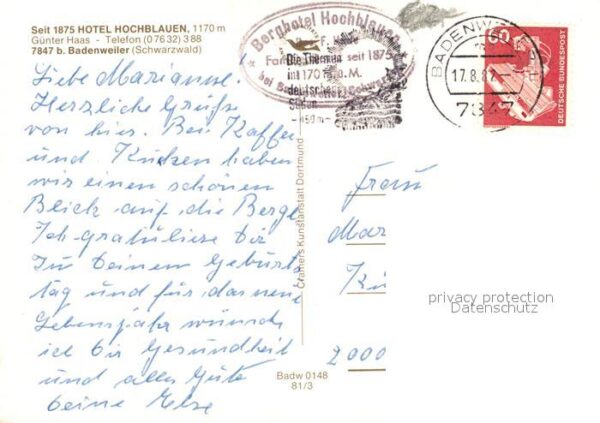 Seit 1875 HOTEL HOCHBLAUEN, 1170 m
Günter Haas - Telefon (07632) 388
7847 b. Badenweiler (Schwarzwald)
Berghotel Hochblauen
seit 1875
Die Thermen
im
1170 ü. M.
deutschen
Süden
- 450 m -
BADENWEILER
17.8.82
7847
60
DEUTSCHE BUNDESPOST
Liebe Marianne!
Herzliche Grüße
von hier. Bei Kaffee
und Kuchen haben
wir einen schönen
Blick auf die Berge
Ich gratuliere Dir
zu Deinem Geburts
tag und für das neue
Lebensjahr wünsch
ich Dir Gesundheit
und alles Gute
Deine Else
Cramers Kunstanstalt Dortmund
Badw 0148
81/3
Frau
Mar
Kü
2000
privacy protection
Datenschutz